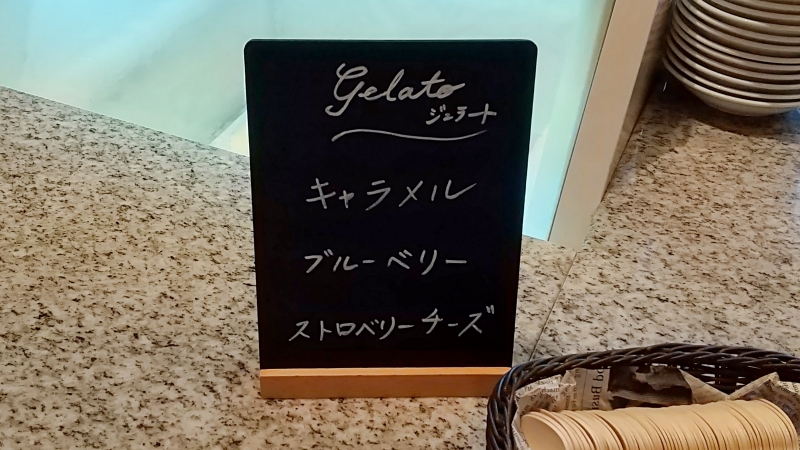 Gelato
ジェラート
キャラメル
ブルーベリー
ストロベリーチーズ